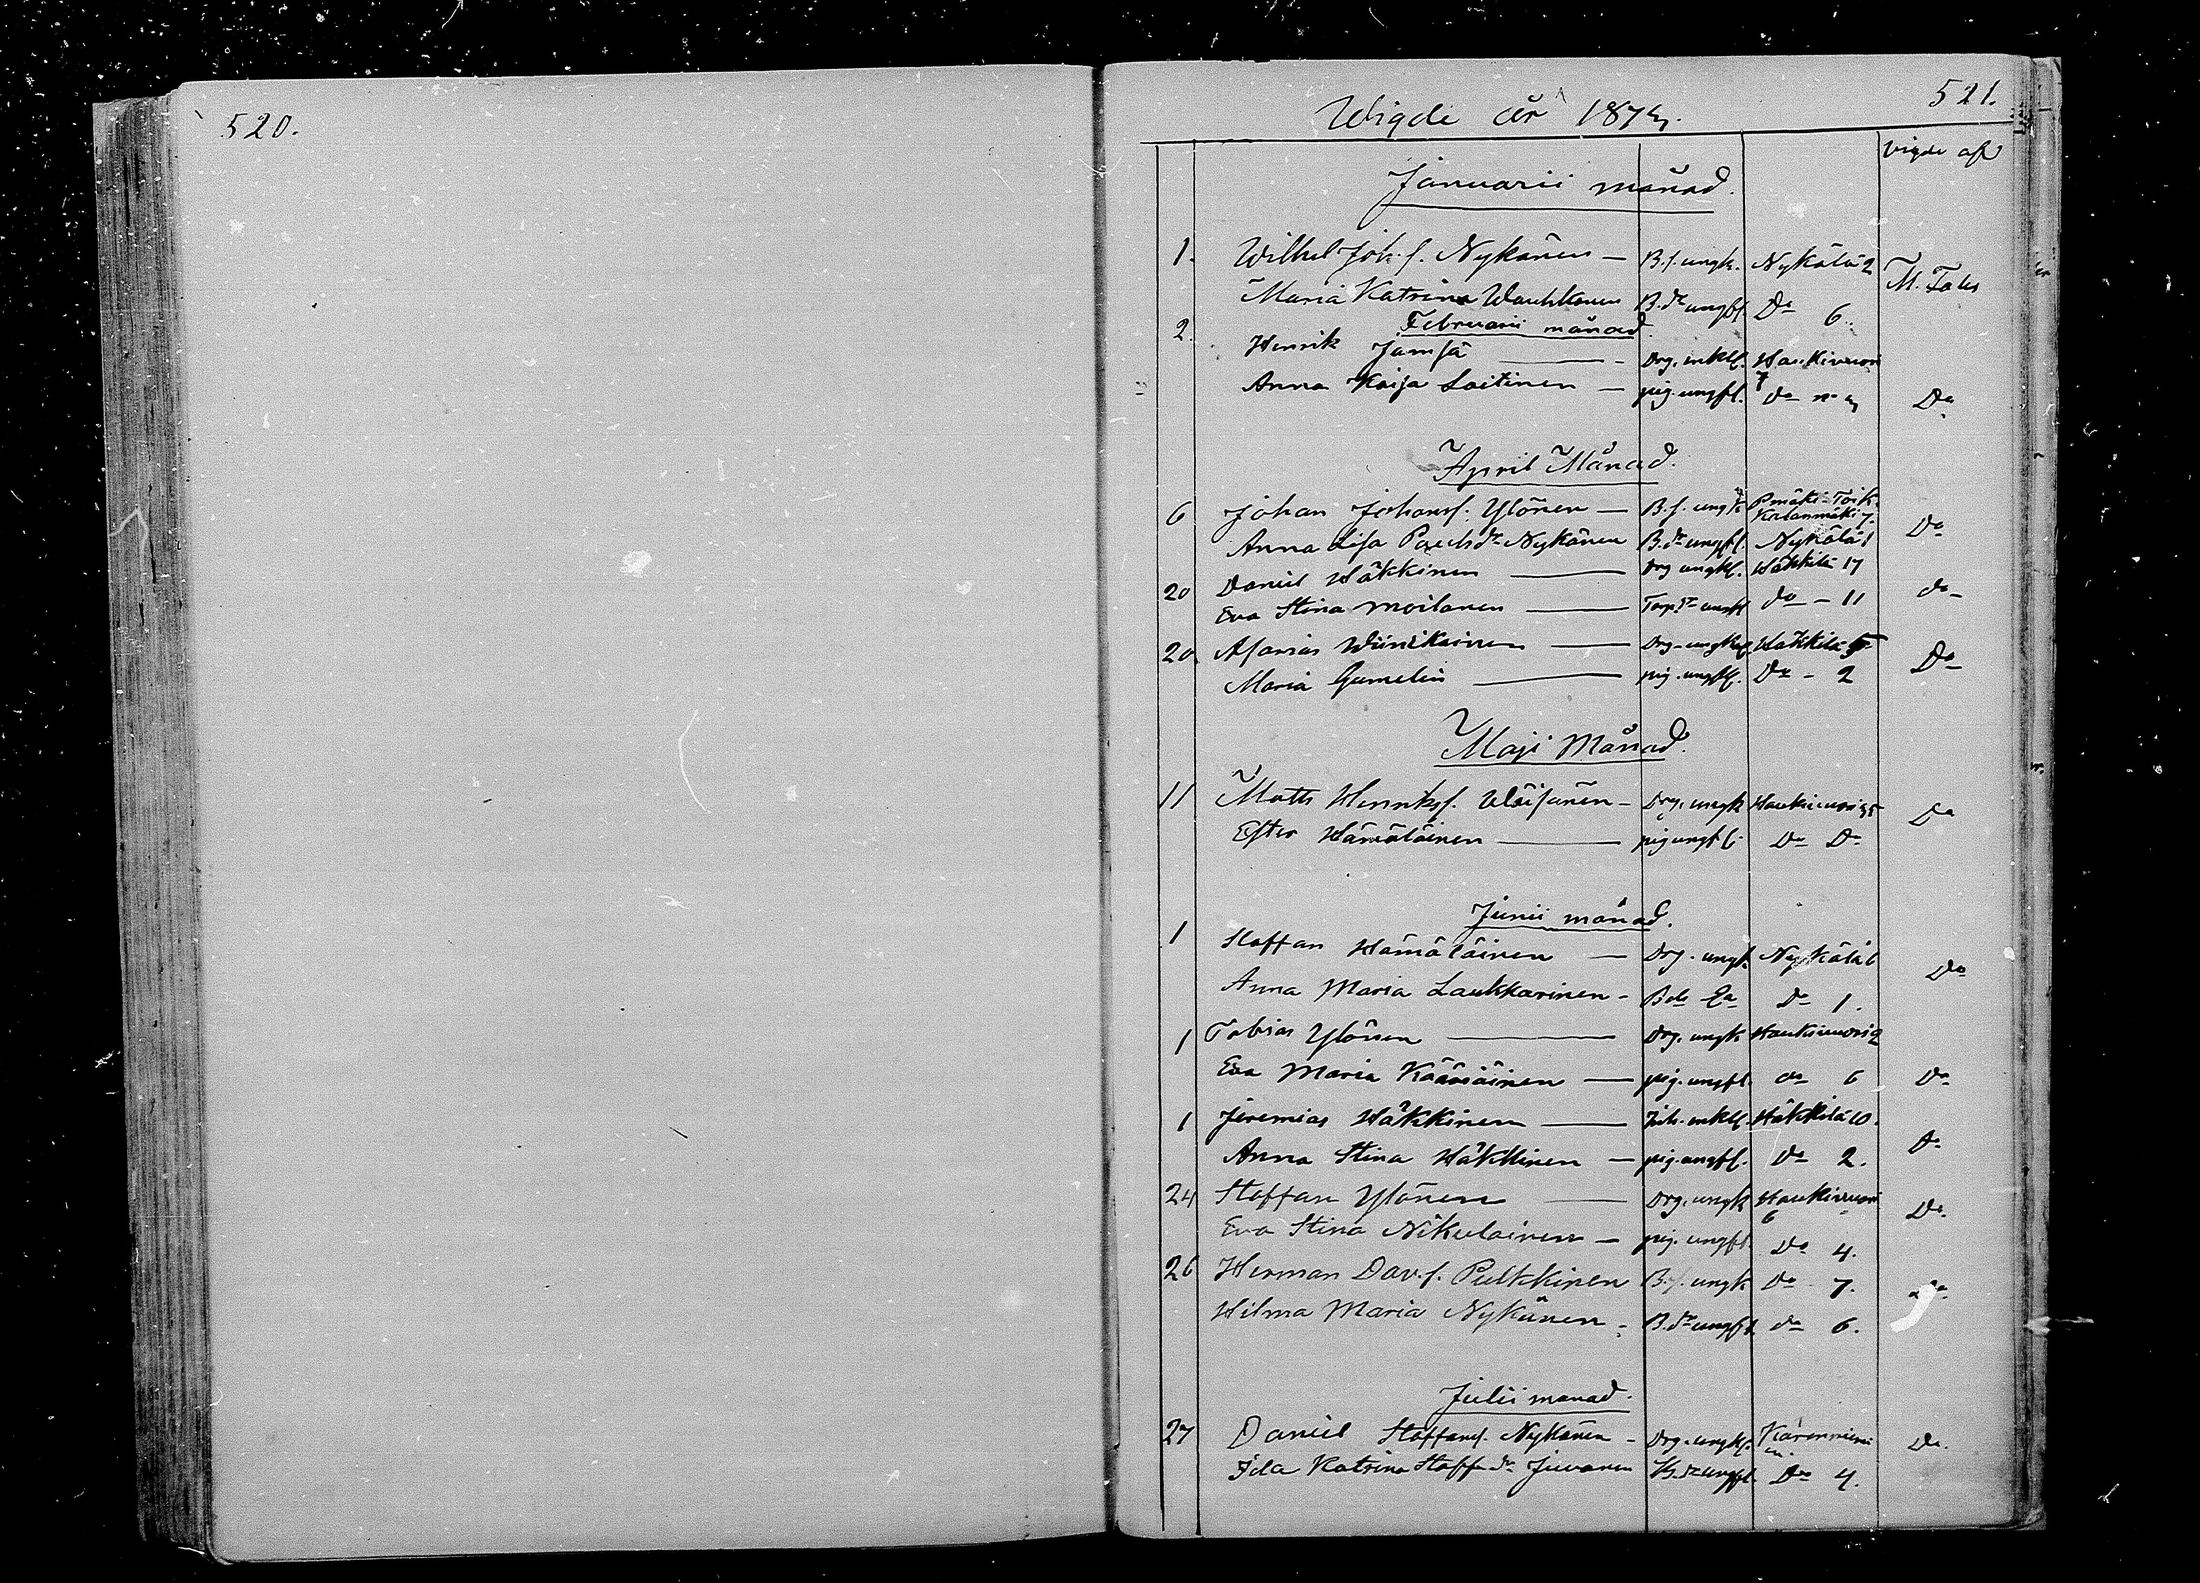 520.
521.
Wigde år 1874.
Vigde af
Januarii månad.
1. Wilhel Joh.s. Nykänen — B.s. ungk. Nykälä 2
Maria Katrina Wauhkonen B.dr ungfl. Do 6. M. Tales
Februarii månad
2. Henrik Jamsä — Drg. enkl. Haukivuori 7
Anna Kaija Laitinen — pig. ungfl. do no 4 Do
April Månad.
6 Johan Johans. Ylönen — B.s. ungk Pmäki
Anna Lisa Paulsdr Nykänen B.dr ungfl. Nykälä 1 Do
20 Daniel Häkkinen — Drg ungkl. Häkkilä 17
Eva Stina Moilanen — Torp.dr ungfl do - 11 do
20. Asarias Wiinikainen — Drg. ungkl Häkkilä 5
Maria Gumelin — pig. ungfl. Do - 2 Do
Maji Månad.
11 Matts Henriks. Wäisänen — Drg. ungk Haukivuori 35
Ester Hämäläinen — pig ungfl. Do Do Do
Junii månad.
1 Staffan Hämäläinen — Drg. ungk. Nykälä 6
Anna Maria Laukkarinen - Do 1. Do
1 Tobias Ylönen — Drg. ungk Haukivuori 2
Eva Maria Kääriäinen — pig. ungfl. do 6 Do
1 Jeremias Häkkinen — Inh. enkl. Häkkilä 10.
Anna Stina Häkkinen — pig. ungfl. Do 2. Do
24 Staffan Ylönen — Drg. ungk Haukivuori 6
Eva Stina Nikulainen — pig. ungfl. Do 4. Do.
26 Herman Dav.s. Pulkkinen B.s. ungk Do 7.
Hilma Maria Nykänen. B.dr ungfl do 6. Do.
Julii manad.
27 Daniel Staffans. Nykänen - Drg. ungkl. Kärenniemi
Ida Katrina Staff.dr Juvonen ungfl. Do 4. Do.